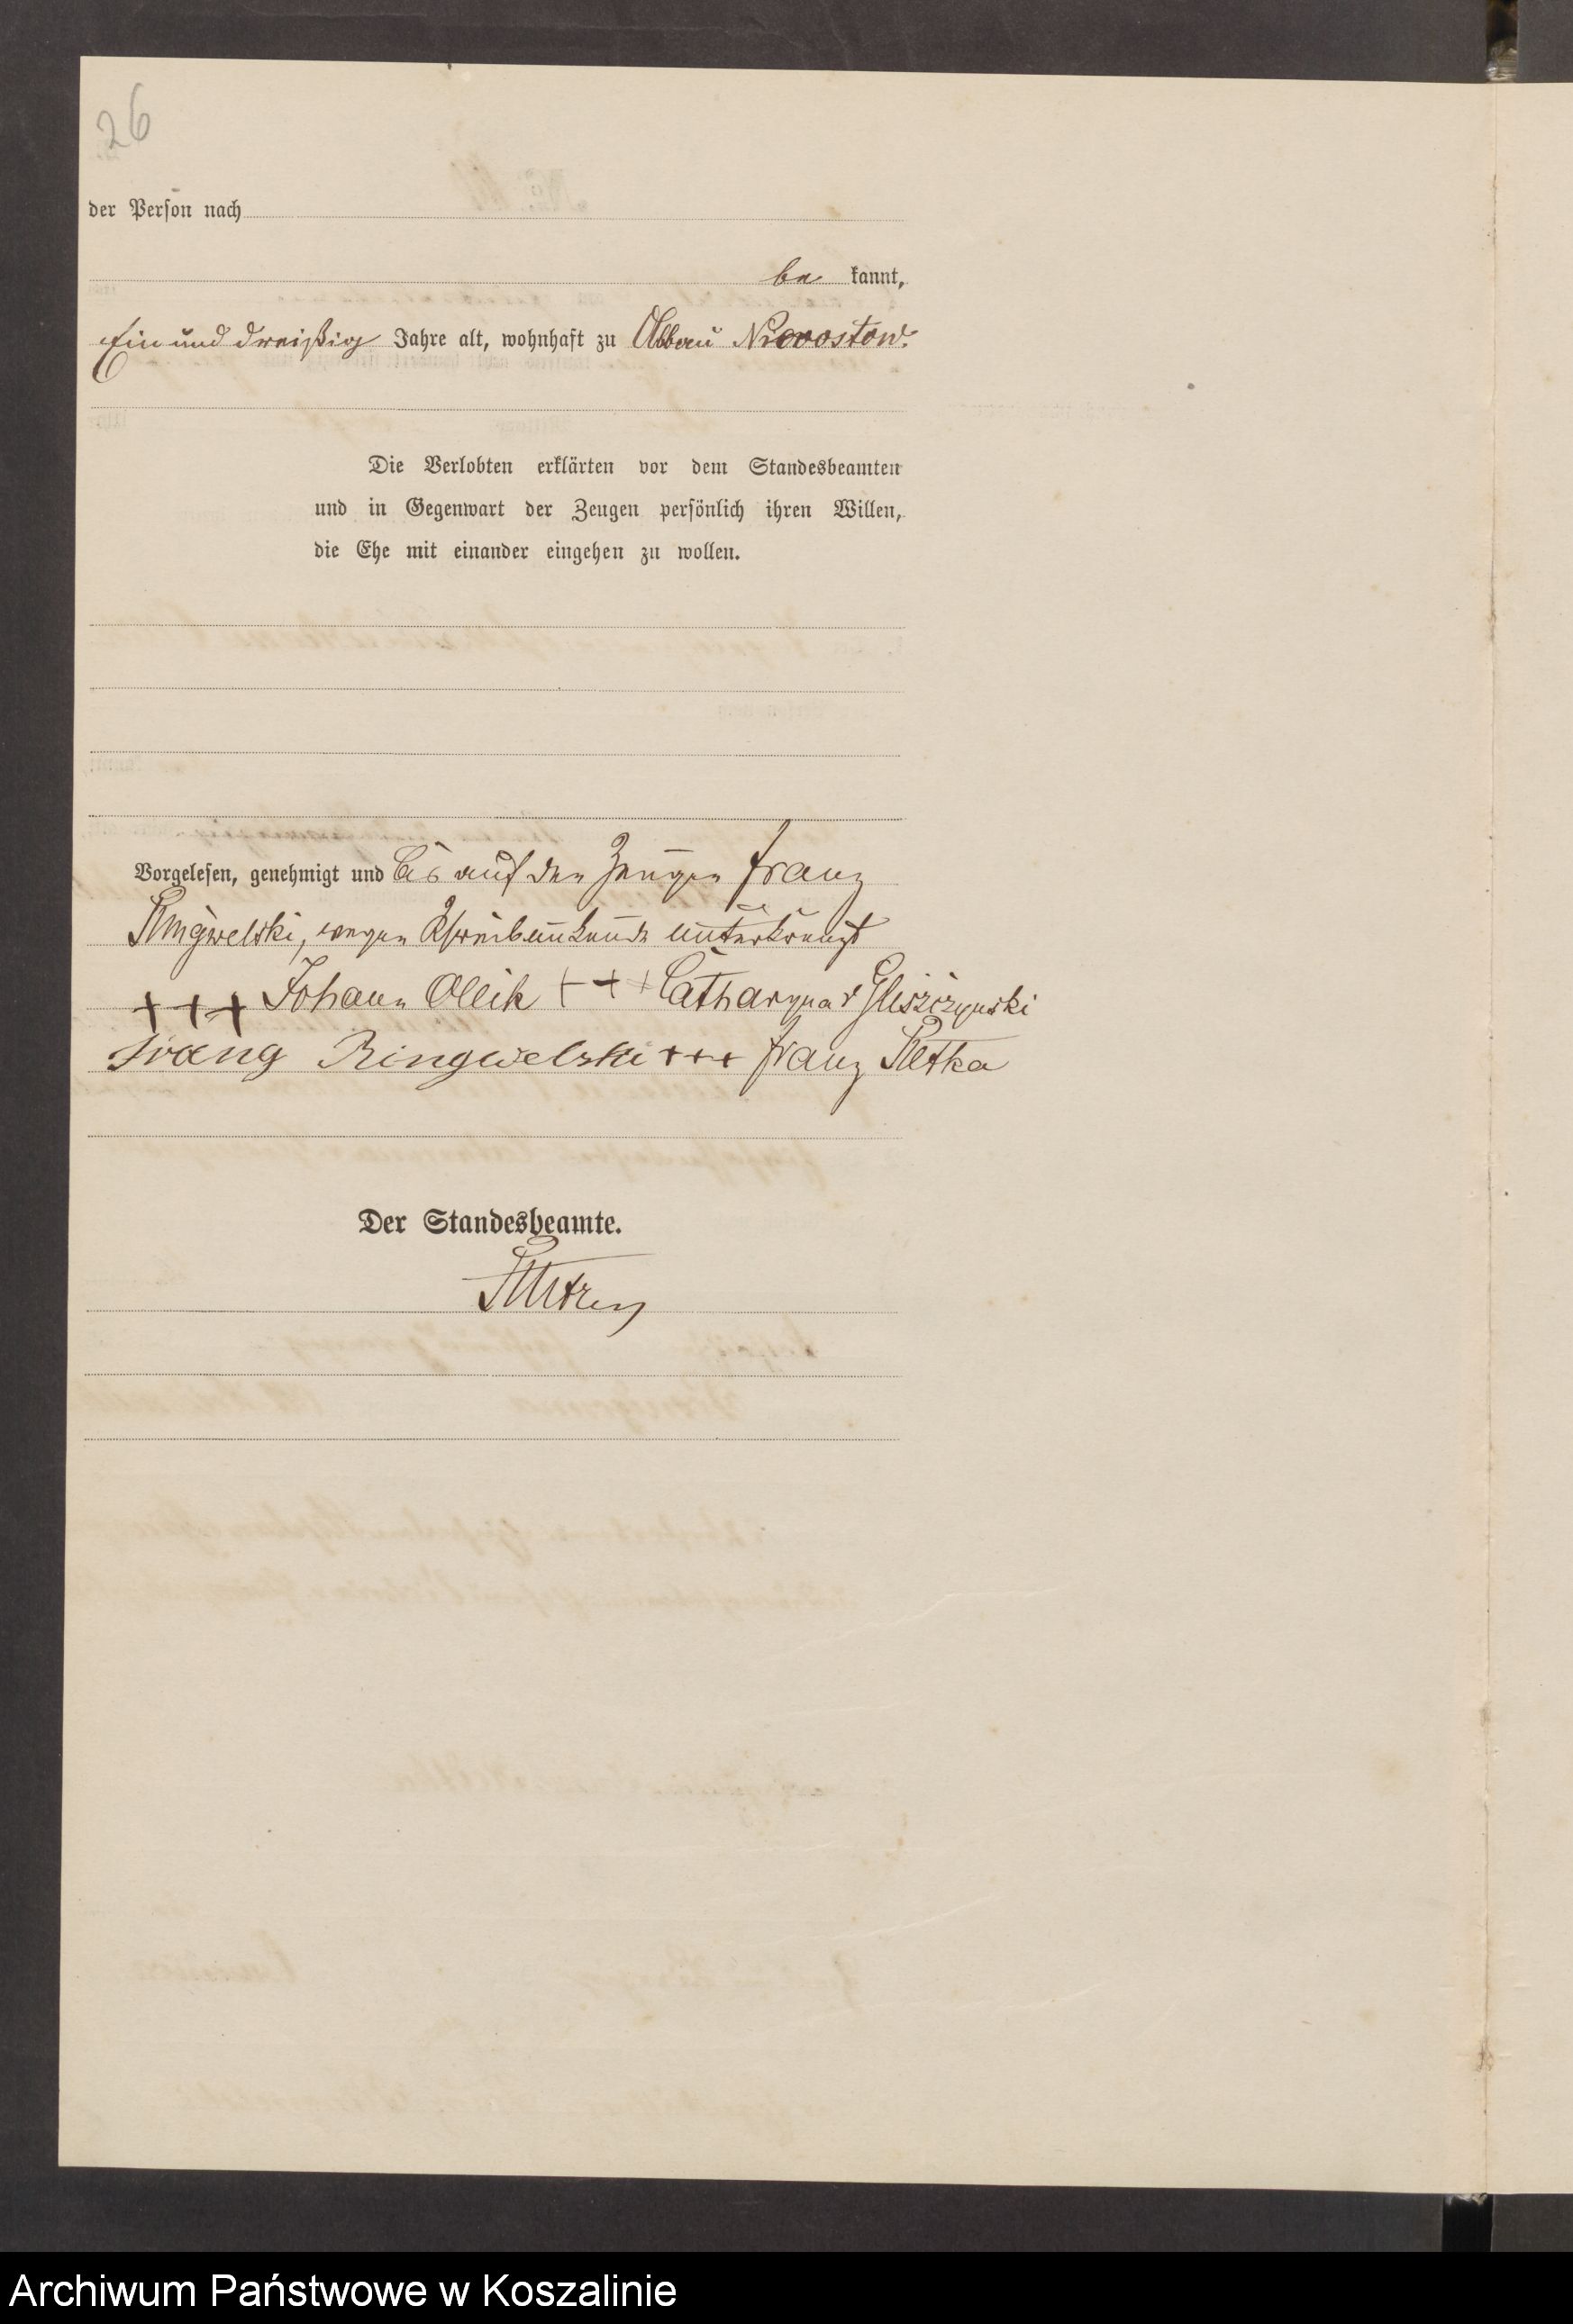 26
der Person nach
be kannt,
Ein und dreißig Jahre alt, wohnhaft zu Abbau
Die Verlobten erklärten vor dem Standesbeamten
und in Gegenwart der Zeugen persönlich ihren Willen,
die Ehe mit einander eingehen zu wollen.
Vorgelesen, genehmigt und bis auf den Zeugen Franz
Ringwelski, wegen Schreibunkunde unterkreuzt
+++ Johann Ollik +++ Catharyna v Gliszczynski
Franz Ringwelski +++ Franz
Der Standesbeamte.
Archiwum Państwowe w Koszalinie